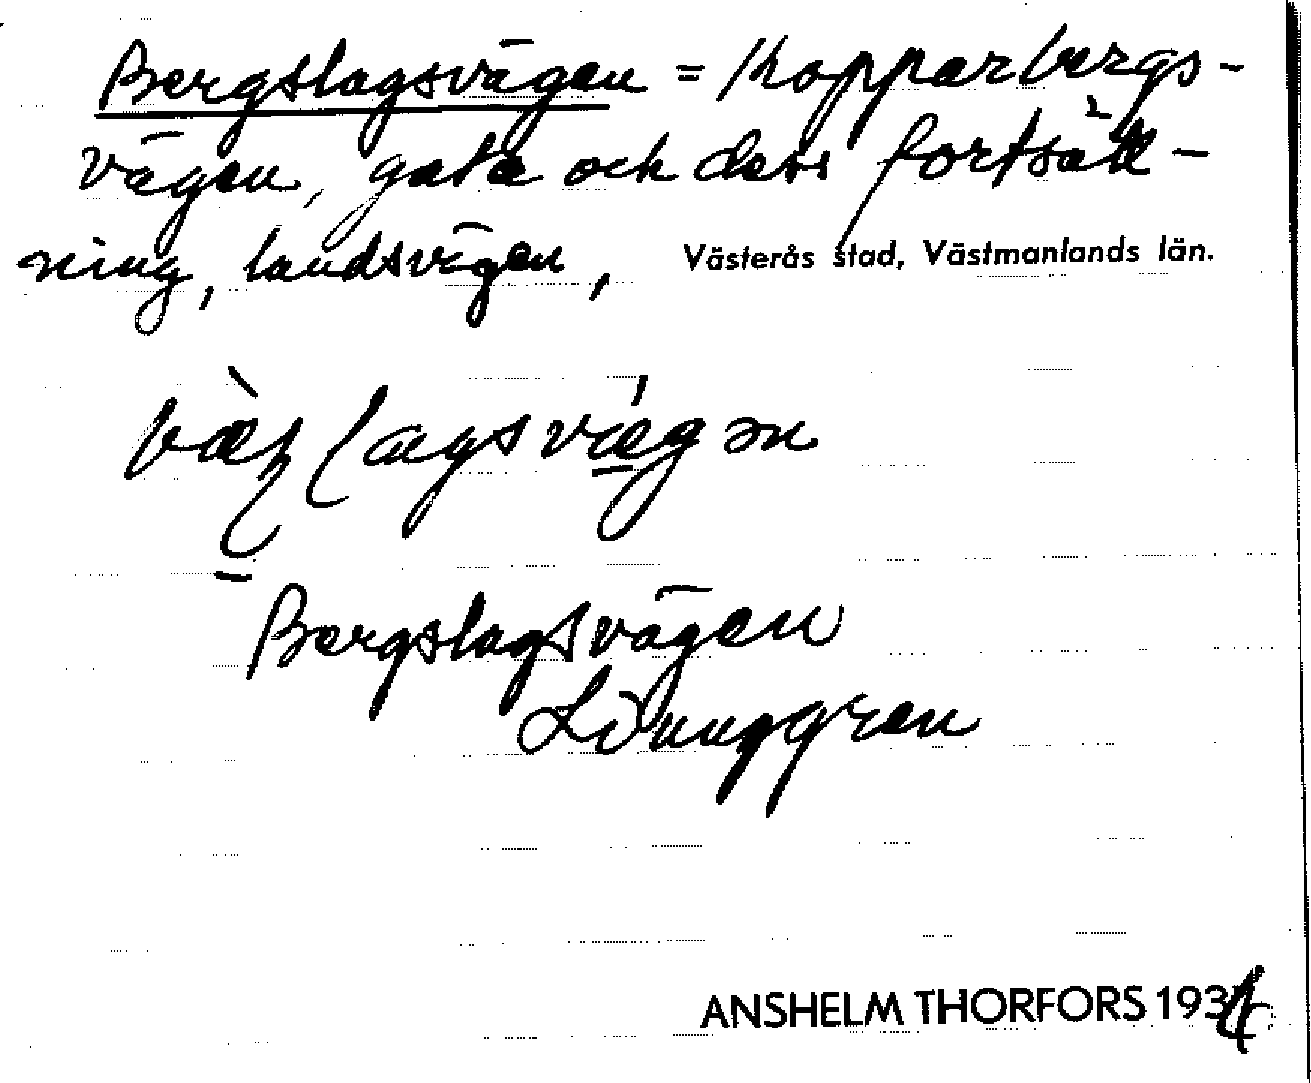 Bergslagsvägen = Kopparbergs-
vägen, gata och dess fortsätt-
ning, landsvägen, Västerås stad, Västmanlands län.
Bergslagsvägen
Lönnggren
ANSHELM THORFORS 1934